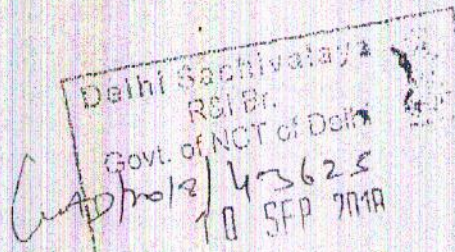 Delhi Sachivalaya
R&I Br.
Govt. of NCT of Delhi
43625
10 SEP 2018